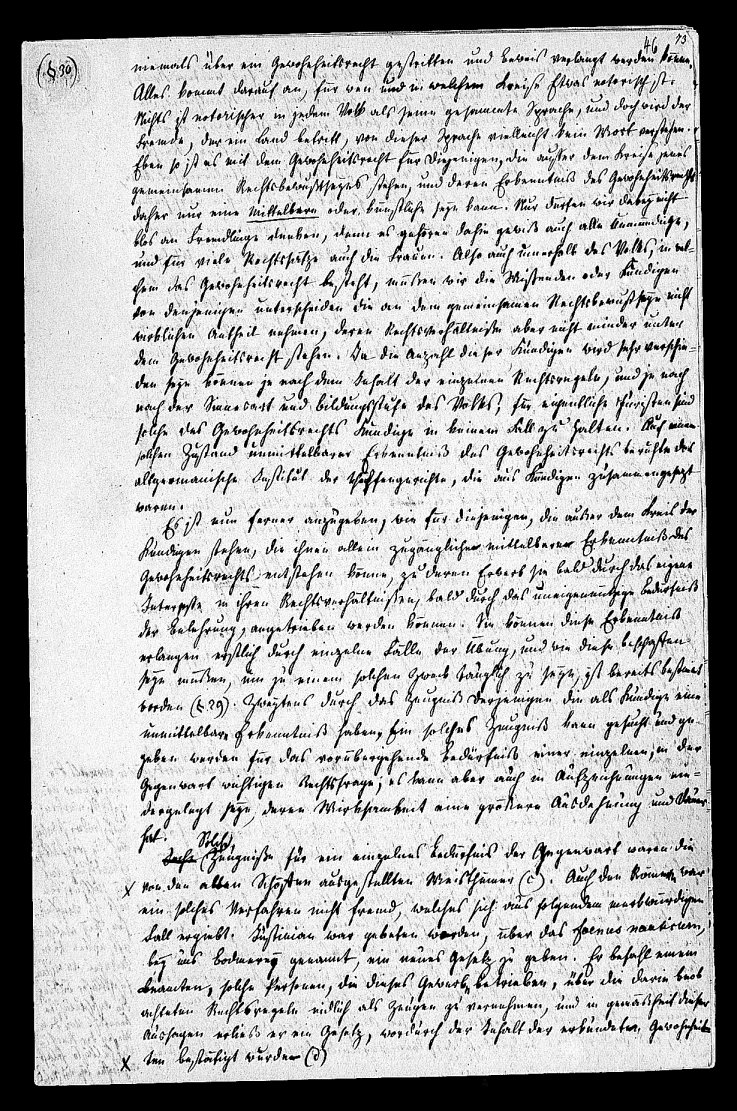 46
73
(§.30)
niemals über ein Gewohnheitsrecht gestritten und Beweis verlangt werden könne.
Alles kommt darauf an, für wen und in welchem Kreise Etwas notorisch ist.
Nichts ist notorischer in jedem Volk als seine gesammte Sprache, und doch wird der
Fremde, der ein Land betritt, von dieser Sprache vielleicht kein Wort verstehen.
Eben so ist es mit dem Gewohnheitsrecht für Diejenigen, die außer dem Kreise jenes
gemeinsamen Rechtsbewußtseyns stehen, und deren Erkenntniß des Gewohnheitsrechts
daher nur eine mittelbare oder künstliche seyn kann. Nur dürfen wir dabey nicht
blos an Fremdlinge denken, denn es gehören dahin gewiß auch alle Unmündige,
und für viele Rechtssätze auch die Frauen. Also auch innerhalb des Volks, in wel-
chem das Gewohnheitsrecht besteht, müssen wir die Wissenden oder Kundigen
von denjenigen unterscheiden die an dem gemeinsamen Rechtsbewußtseyn nicht
wirklichen Antheil nehmen, deren Rechtsverhältnisse aber nicht minder unter
dem Gewohnheitsrecht stehen. Ja die Anzahl dieser Kundigen wird sehr verschie-
den seyn können je nach dem Inhalt der einzelnen Rechtsregeln, und je nach
nach der Sinnesart und Bildungsstufe des Volks; für eigentliche Juristen sind
solche des Gewohnheitsrechts Kundige in keinem Fall zu halten. Auf einem
solchen Zustand unmittelbarer Erkenntniß des Gewohnheitsrechts beruhte das
allgermanische Institut der Schöffengerichte, die aus Kundigen zusammengesetzt
waren.
Es ist nun ferner anzugeben, wie für diejenigen, die außer dem Kreis der
Kundigen stehen, die ihnen allein zugängliche mittelbare Erkenntniß des
Gewohnheitsrechts entstehen könne, zu deren Erwerb sie bald durch das eigene
Interesse in ihren Rechtsverhältnissen, bald durch das uneigennützige Bedürfniß
der Belehrung, angetrieben werden können. Sie können diese Erkenntniß
erlangen erstlich durch einzelne Fälle der Übung, und wie diese beschaffen
seyn müssen, um zu einem solchen Zweck tauglich zu seyn, ist bereits bestimmt
worden (§.29). Zweytens durch das Zeugniß Derjenigen die als Kundige eine
unmittelbare Erkenntniß haben. Ein solches Zeugniß kann gesucht und ge-
geben werden für das vorübergehende Bedürfniß einer einzelnen, in der
Gegenwart wichtigen Rechtsfrage; es kann aber auch in Aufzeichnungen nie-
dergelegt seyn, deren Wirksamkeit eine größere Ausdehnung und Dauer
hat.
Solche
Zeugnisse für ein einzelnes Bedürfniß der Gegenwart waren die
x von den alten Schöffen ausgestellten Weisthümer (c). Auch den Römern war
ein solches Verfahren nicht fremd, welches sich aus folgendem merkwürdigen
Fall ergiebt. Justinian war gebeten worden, über das foenus nauticum,
bey uns Bodmerey genannt, ein neues Gesetz zu geben. Er befahl einem
Beamten, solche Personen, die dieses Gewerbe betrieben, über die darin beob
achteten Rechtsregeln eidlich als Zeugen zu vernehmen, und in Gemäßheit dieser
Aussagen erließ er ein Gesetz, wodurch der Inhalt der erkundeten Gewohnhei-
x ten bestätigt wurde (d)